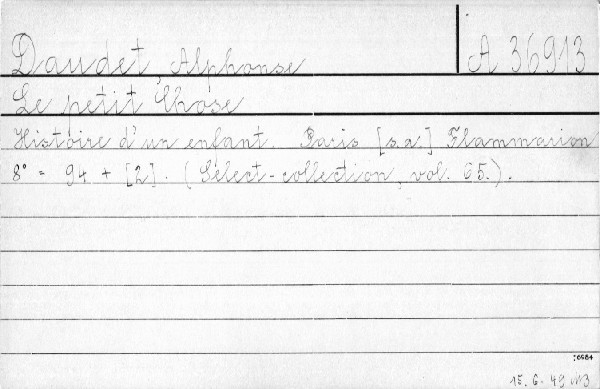 Daudet, Alphonse A 36913
Le petit Chose
Histoire d'un enfant. Paris [s.a.] Flammarion
8° = 94 + [2]. (Select-collection, vol. 65.).
15. 6. 49